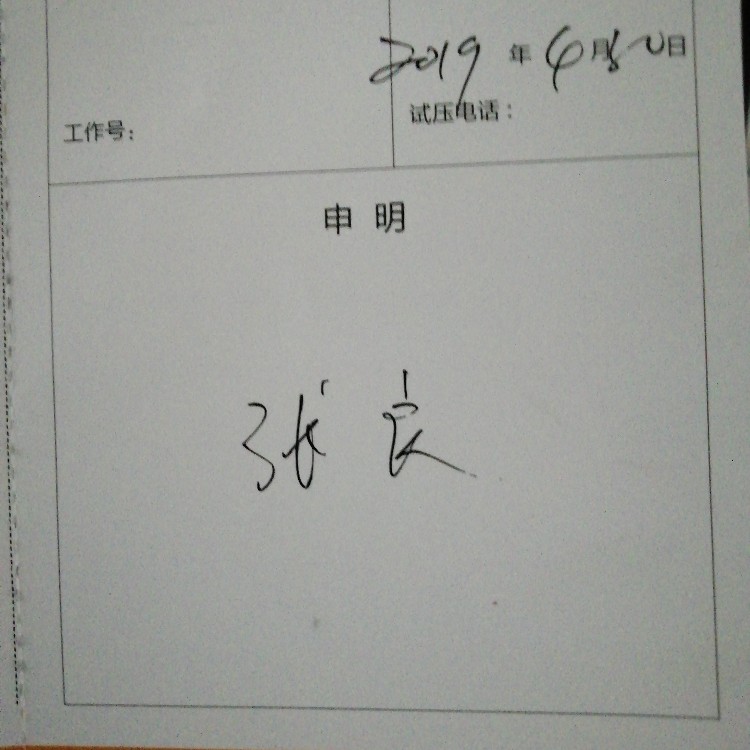 2019年6月 日
工作号:
试压电话:
申明
张良